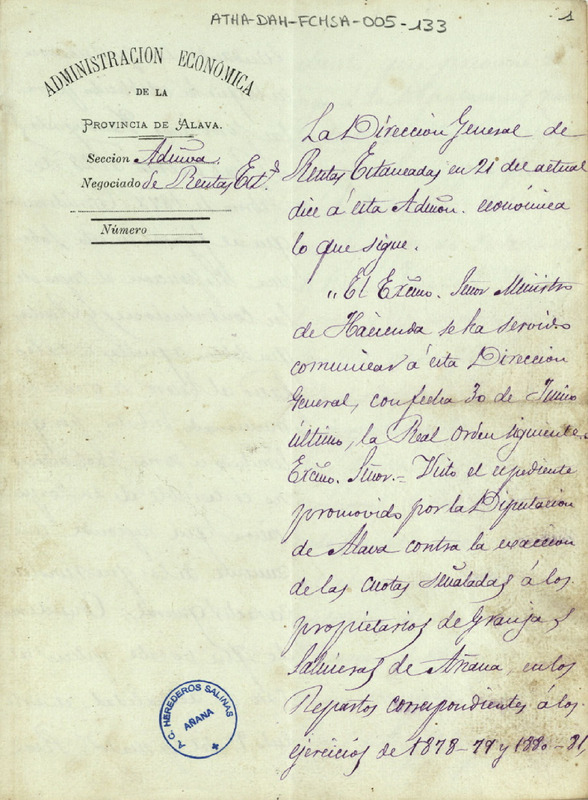 ATHA-DAH-FCHSA-005-133
1
ADMINISTRACION ECONÓMICA
DE LA
PROVINCIA DE ALAVA.
Seccion Aduna.
Negociado de Rentas Estd.
Número
La Direccion General de
Rentas Estancadas en 21 del actual
dice á esta Admon. económica
lo que sigue.
"El Excmo. Señor Ministro
de Hacienda se ha servido
comunicar á esta Direccion
General, con fecha 30 de Junio
último, la Real orden siguiente.
Excmo. Señor.= Visto el espediente
promovido por la Diputacion
de Alava contra la exaccion
de las cuotas señaladas á los
propietarios de Granjas
Salineras de Añana, en los
Repartos correspondientes á los
ejercicios de 1878-79 y 1880-81,
A.C. HEREDEROS SALINAS
AÑANA